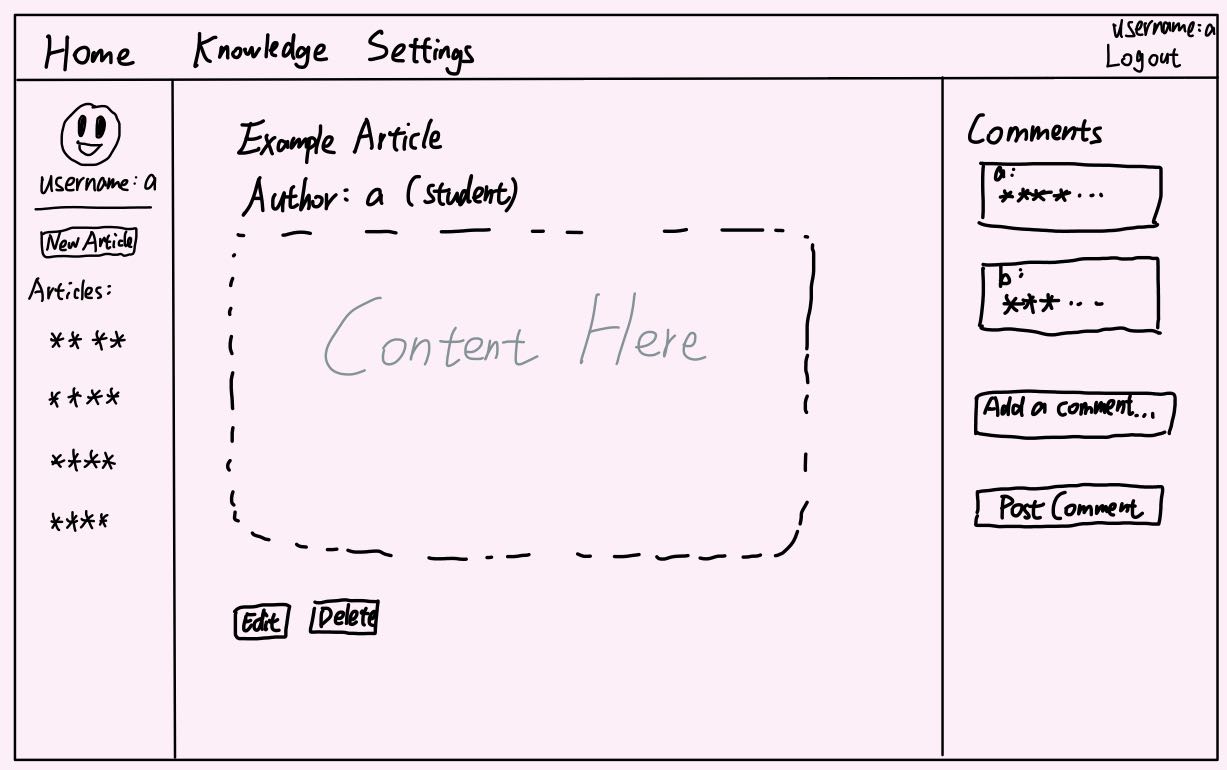 Home Knowledge Settings
username: a
Logout
username: a
New Article
Articles:
** **
****
****
****
Example Article
Author: a (student)
Content Here
Edit Delete
Comments
a:
****...
b:
***...
Add a comment...
Post Comment